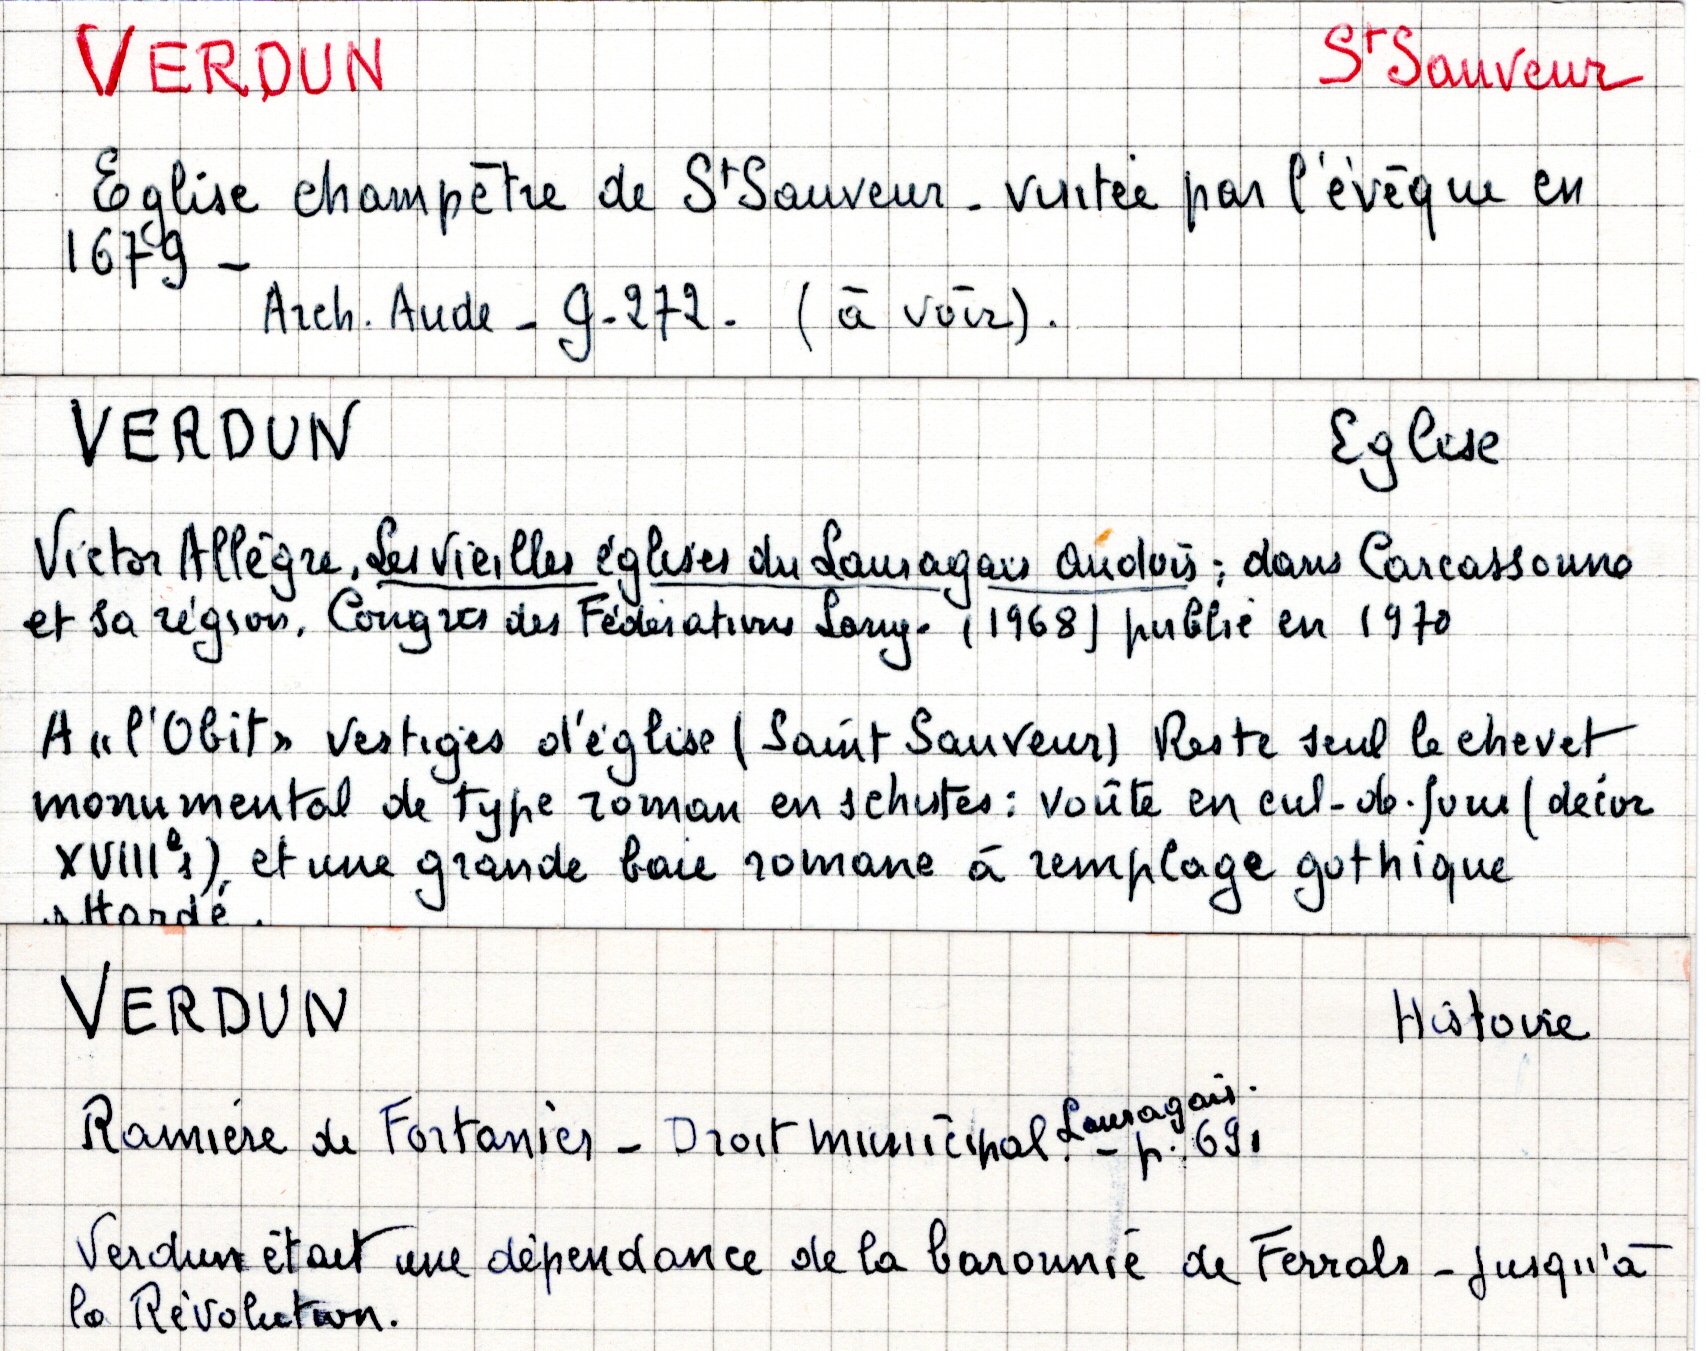 VERDUN St Sauveur
Eglise champêtre de St Sauveur - visitée par l'évêque en
1679 -
Arch. Aude - G-272. (à voir).
VERDUN Eglise
Victor Allègre. Les vieilles églises du Lauragais audois ; dans Carcassonne
et sa région. Congrès des Fédérations Lang. (1968) publié en 1970
A "l'Obit" vestiges d'église (Saint Sauveur) Reste seul le chevet
monumental de type roman en schistes : voûte en cul-de-four (décor
XVIIIe s), et une grande baie romane à remplage gothique
attardé.
VERDUN Histoire
Ramière de Fortanier - Droit municipal Lauragais. - p. 691
Verdun était une dépendance de la baronnie de Ferrals - jusqu'à
la Révolution.